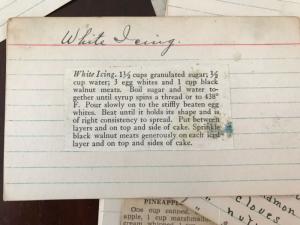 White Icing.
White Icing. 1½ cups granulated sugar; ½
cup water; 3 egg whites and 1 cup black
walnut meats. Boil sugar and water to-
gether until syrup spins a thread or to 438°
F. Pour slowly on to the stiffly beaten egg
whites. Beat until it holds its shape and is
of right consistency to spread. Put between
layers and on top and side of cake. Sprinkle
black walnut meats generously on each iced
layer and on top and sides of cake.
PINEAPPLE
One cup canned
apple, 1 cup marshmal
cloves